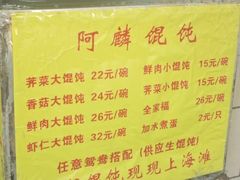 阿麟馄饨
荠菜大馄饨 22元/碗 鲜肉小馄饨 15元/碗
香菇大馄饨 24元/碗 荠菜小馄饨 15元/碗
鲜肉大馄饨 26元/碗 全家福 26元/碗
虾仁大馄饨 32元/碗 加水煮蛋 2元/只
任意鸳鸯搭配(供应生馄饨)
馄饨现现上海滩